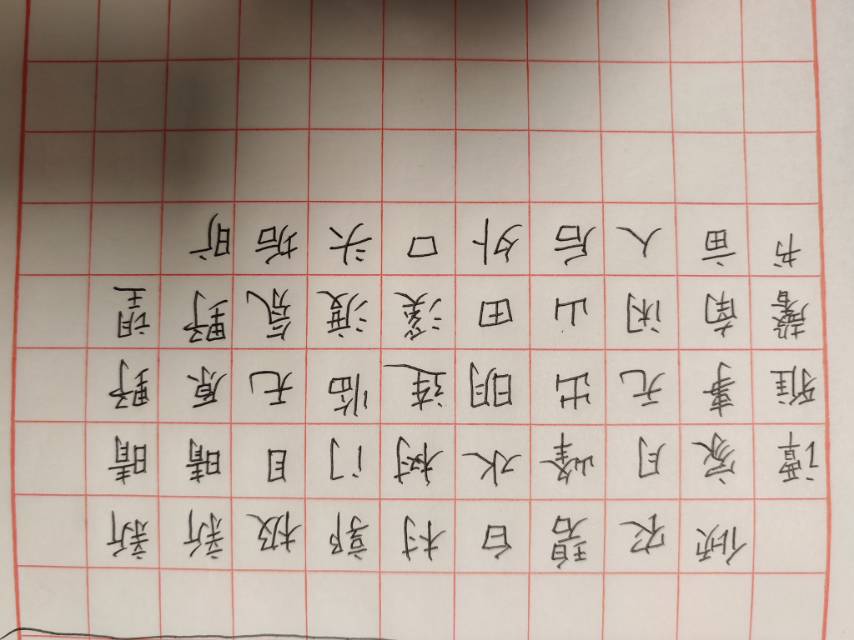 新晴野望
新晴原野旷
极目无氛垢
郭门临渡头
村树连溪口
白水明田外
碧峰出山后
农月无闲人
倾家事南亩
谭雅馨书